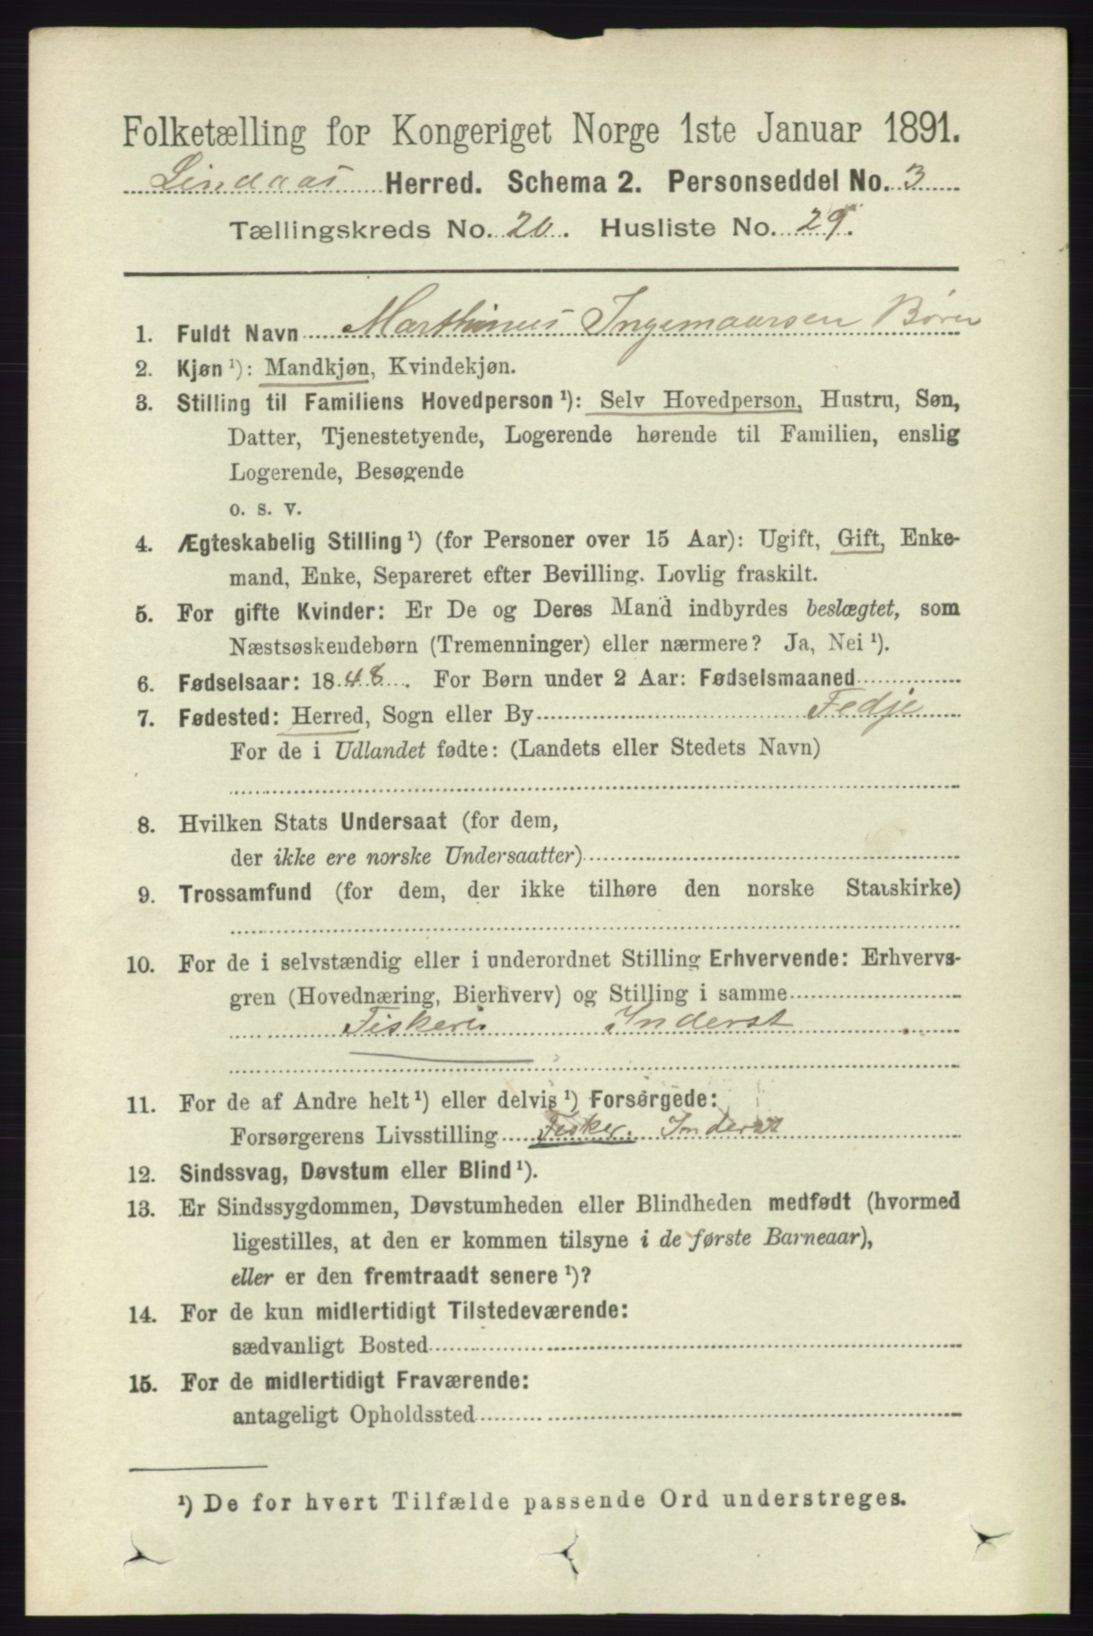 Folketælling for Kongeriget Norge 1ste Januar 1891.
Lindaas Herred. Schema 2. Personseddel No. 3
Tællingskreds No. 20. Husliste No. 29.
1. Fuldt Navn Marthinus Ingemaarsen Bören
2. Kjøn ¹): Mandkjøn, Kvindekjøn.
3. Stilling til Familiens Hovedperson ¹): Selv Hovedperson, Hustru, Søn,
Datter, Tjenestetyende, Logerende hørende til Familien, enslig
Logerende, Besøgende
o. s. v.
4. Ægteskabelig Stilling ¹) (for Personer over 15 Aar): Ugift, Gift, Enke-
mand, Enke, Separeret efter Bevilling. Lovlig fraskilt.
5. For gifte Kvinder: Er De og Deres Mand indbyrdes beslægtet, som
Næstsøskendebørn (Tremenninger) eller nærmere? Ja, Nei ¹).
6. Fødselsaar: 1848. For Børn under 2 Aar: Fødselsmaaned
7. Fødested: Herred, Sogn eller By Fedje
For de i Udlandet fødte: (Landets eller Stedets Navn)
8. Hvilken Stats Undersaat (for dem,
der ikke ere norske Undersaatter)
9. Trossamfund (for dem, der ikke tilhøre den norske Statskirke)
10. For de i selvstændig eller i underordnet Stilling Erhvervende: Erhvervs-
gren (Hovednæring, Bierhverv) og Stilling i samme
Fiskeri Inderst
11. For de af Andre helt ¹) eller delvis ¹) Forsørgede:
Forsørgerens Livsstilling Fisker. Inderst
12. Sindssvag, Døvstum eller Blind ¹).
13. Er Sindssygdommen, Døvstumheden eller Blindheden medfødt (hvormed
ligestilles, at den er kommen tilsyne i de første Barneaar),
eller er den fremtraadt senere ¹)?
14. For de kun midlertidigt Tilstedeværende:
sædvanligt Bosted
15. For de midlertidigt Fraværende:
antageligt Opholdssted
¹) De for hvert Tilfælde passende Ord understreges.